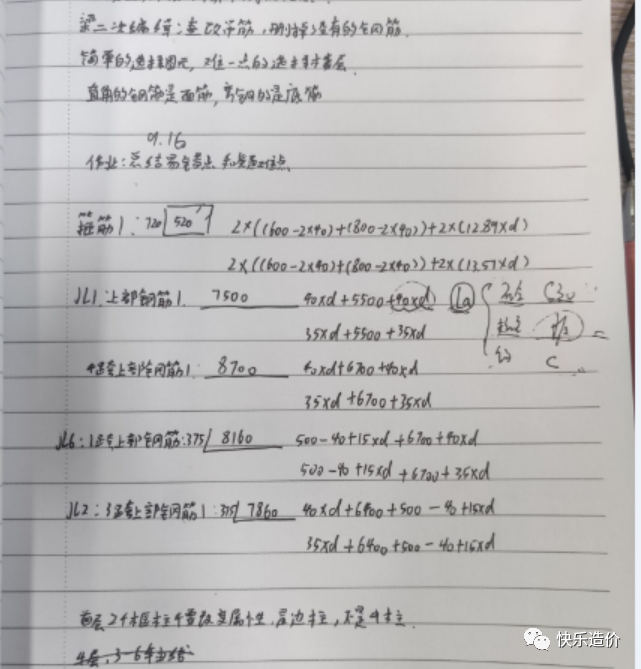 梁二次编辑:查改吊筋,删掉没有的钢筋.
简单的选择图元,难一点的选择本层
直角的钢筋是面筋,弯钩的是底筋
9.16
作业:总结易错点 和疑难点.
箍筋1: 720 520 2×((600-2×40)+(800-2×40))+2×(12.89×d)
2×((600-2×40)+(800-2×40))+2×(13.57×d)
JL1.上部钢筋1. 7500 40×d+5500+40×d La
35×d+5500+35×d C
上部钢筋1: 8700 40×d+6700+40×d
35×d+6700+35×d
JL6: 1 上部钢筋:375 8160 500-40+15×d+6700+40×d
500-40+15×d+6700+35×d
JL2: 3 上部钢筋1: 375 7860 40×d+6400+500-40+15×d
35×d+6400+500-40+15×d
首层2个框柱需改变属性,是边柱,不是中柱.
快乐造价